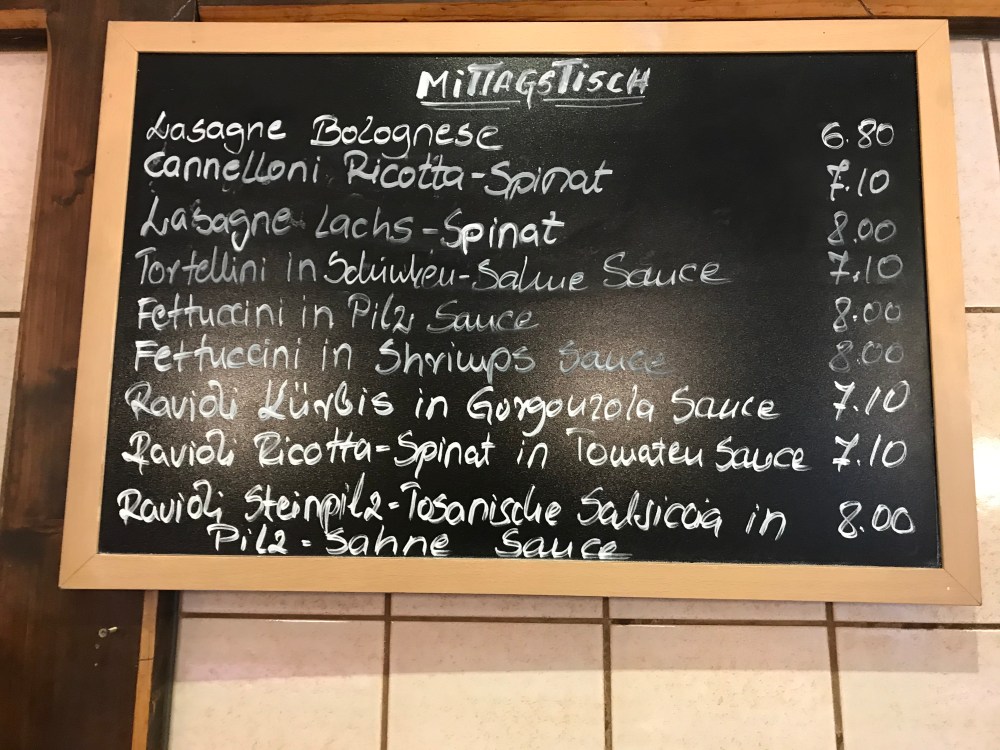 MITTAGSTISCH
Lasagne Bolognese 6.80
Cannelloni Ricotta-Spinat 7.10
Lasagne Lachs-Spinat 8.00
Tortellini in Schinken-Sahne Sauce 7.10
Fettuccini in Pilz Sauce 8.00
Fettuccini in Shrimps Sauce 8.00
Ravioli Kürbis in Gorgonzola Sauce 7.10
Ravioli Ricotta-Spinat in Tomaten Sauce 7.10
Ravioli Steinpilz-Tosanische Salsiccia in 8.00
Pilz-Sahne Sauce